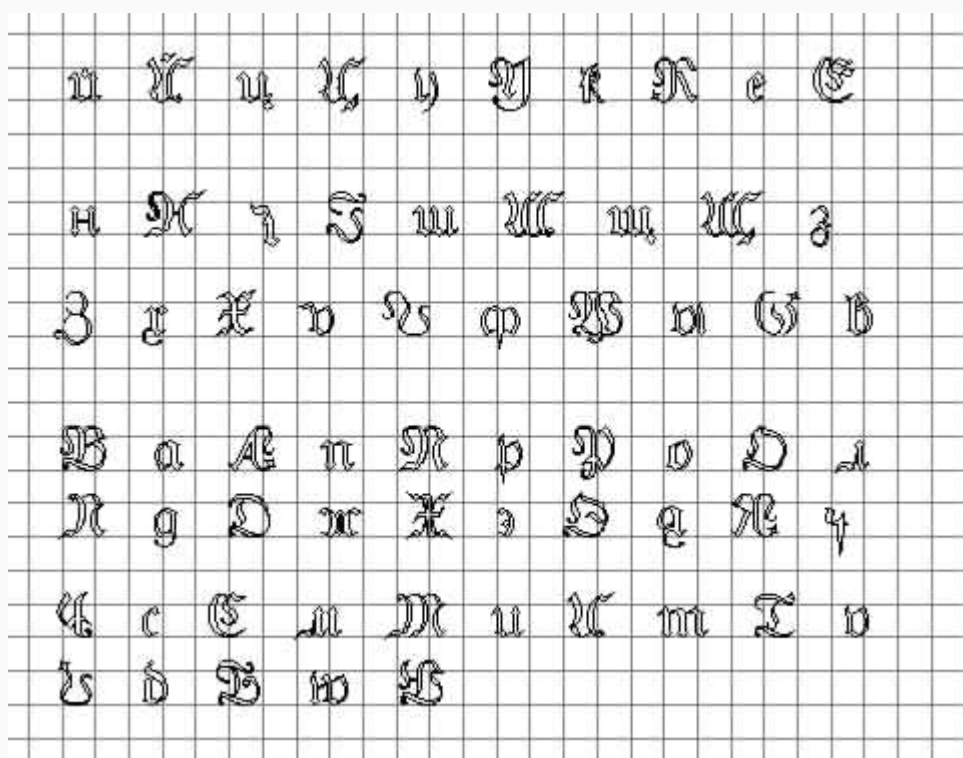 й Й ц Ц у У к К е Е
н Н г Г ш Ш щ Щ з
З х Х ъ Ъ ф Ф ы Ы в
В а А п П р Р о О л
Л д Д ж Ж э Э я Я ч
Ч с С м М и И т Т ь
Ь б Б ю Ю